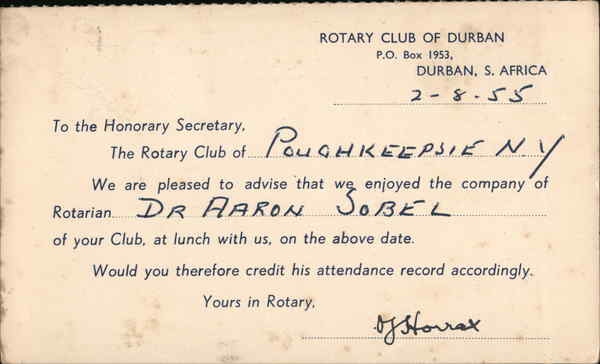 ROTARY CLUB OF DURBAN
P.O. Box 1953,
DURBAN, S. AFRICA
2-8-55
To the Honorary Secretary,
The Rotary Club of POUGHKEEPSIE N.Y
We are pleased to advise that we enjoyed the company of
Rotarian DR AARON SOBEL
of your Club, at lunch with us, on the above date.
Would you therefore credit his attendance record accordingly.
Yours in Rotary,